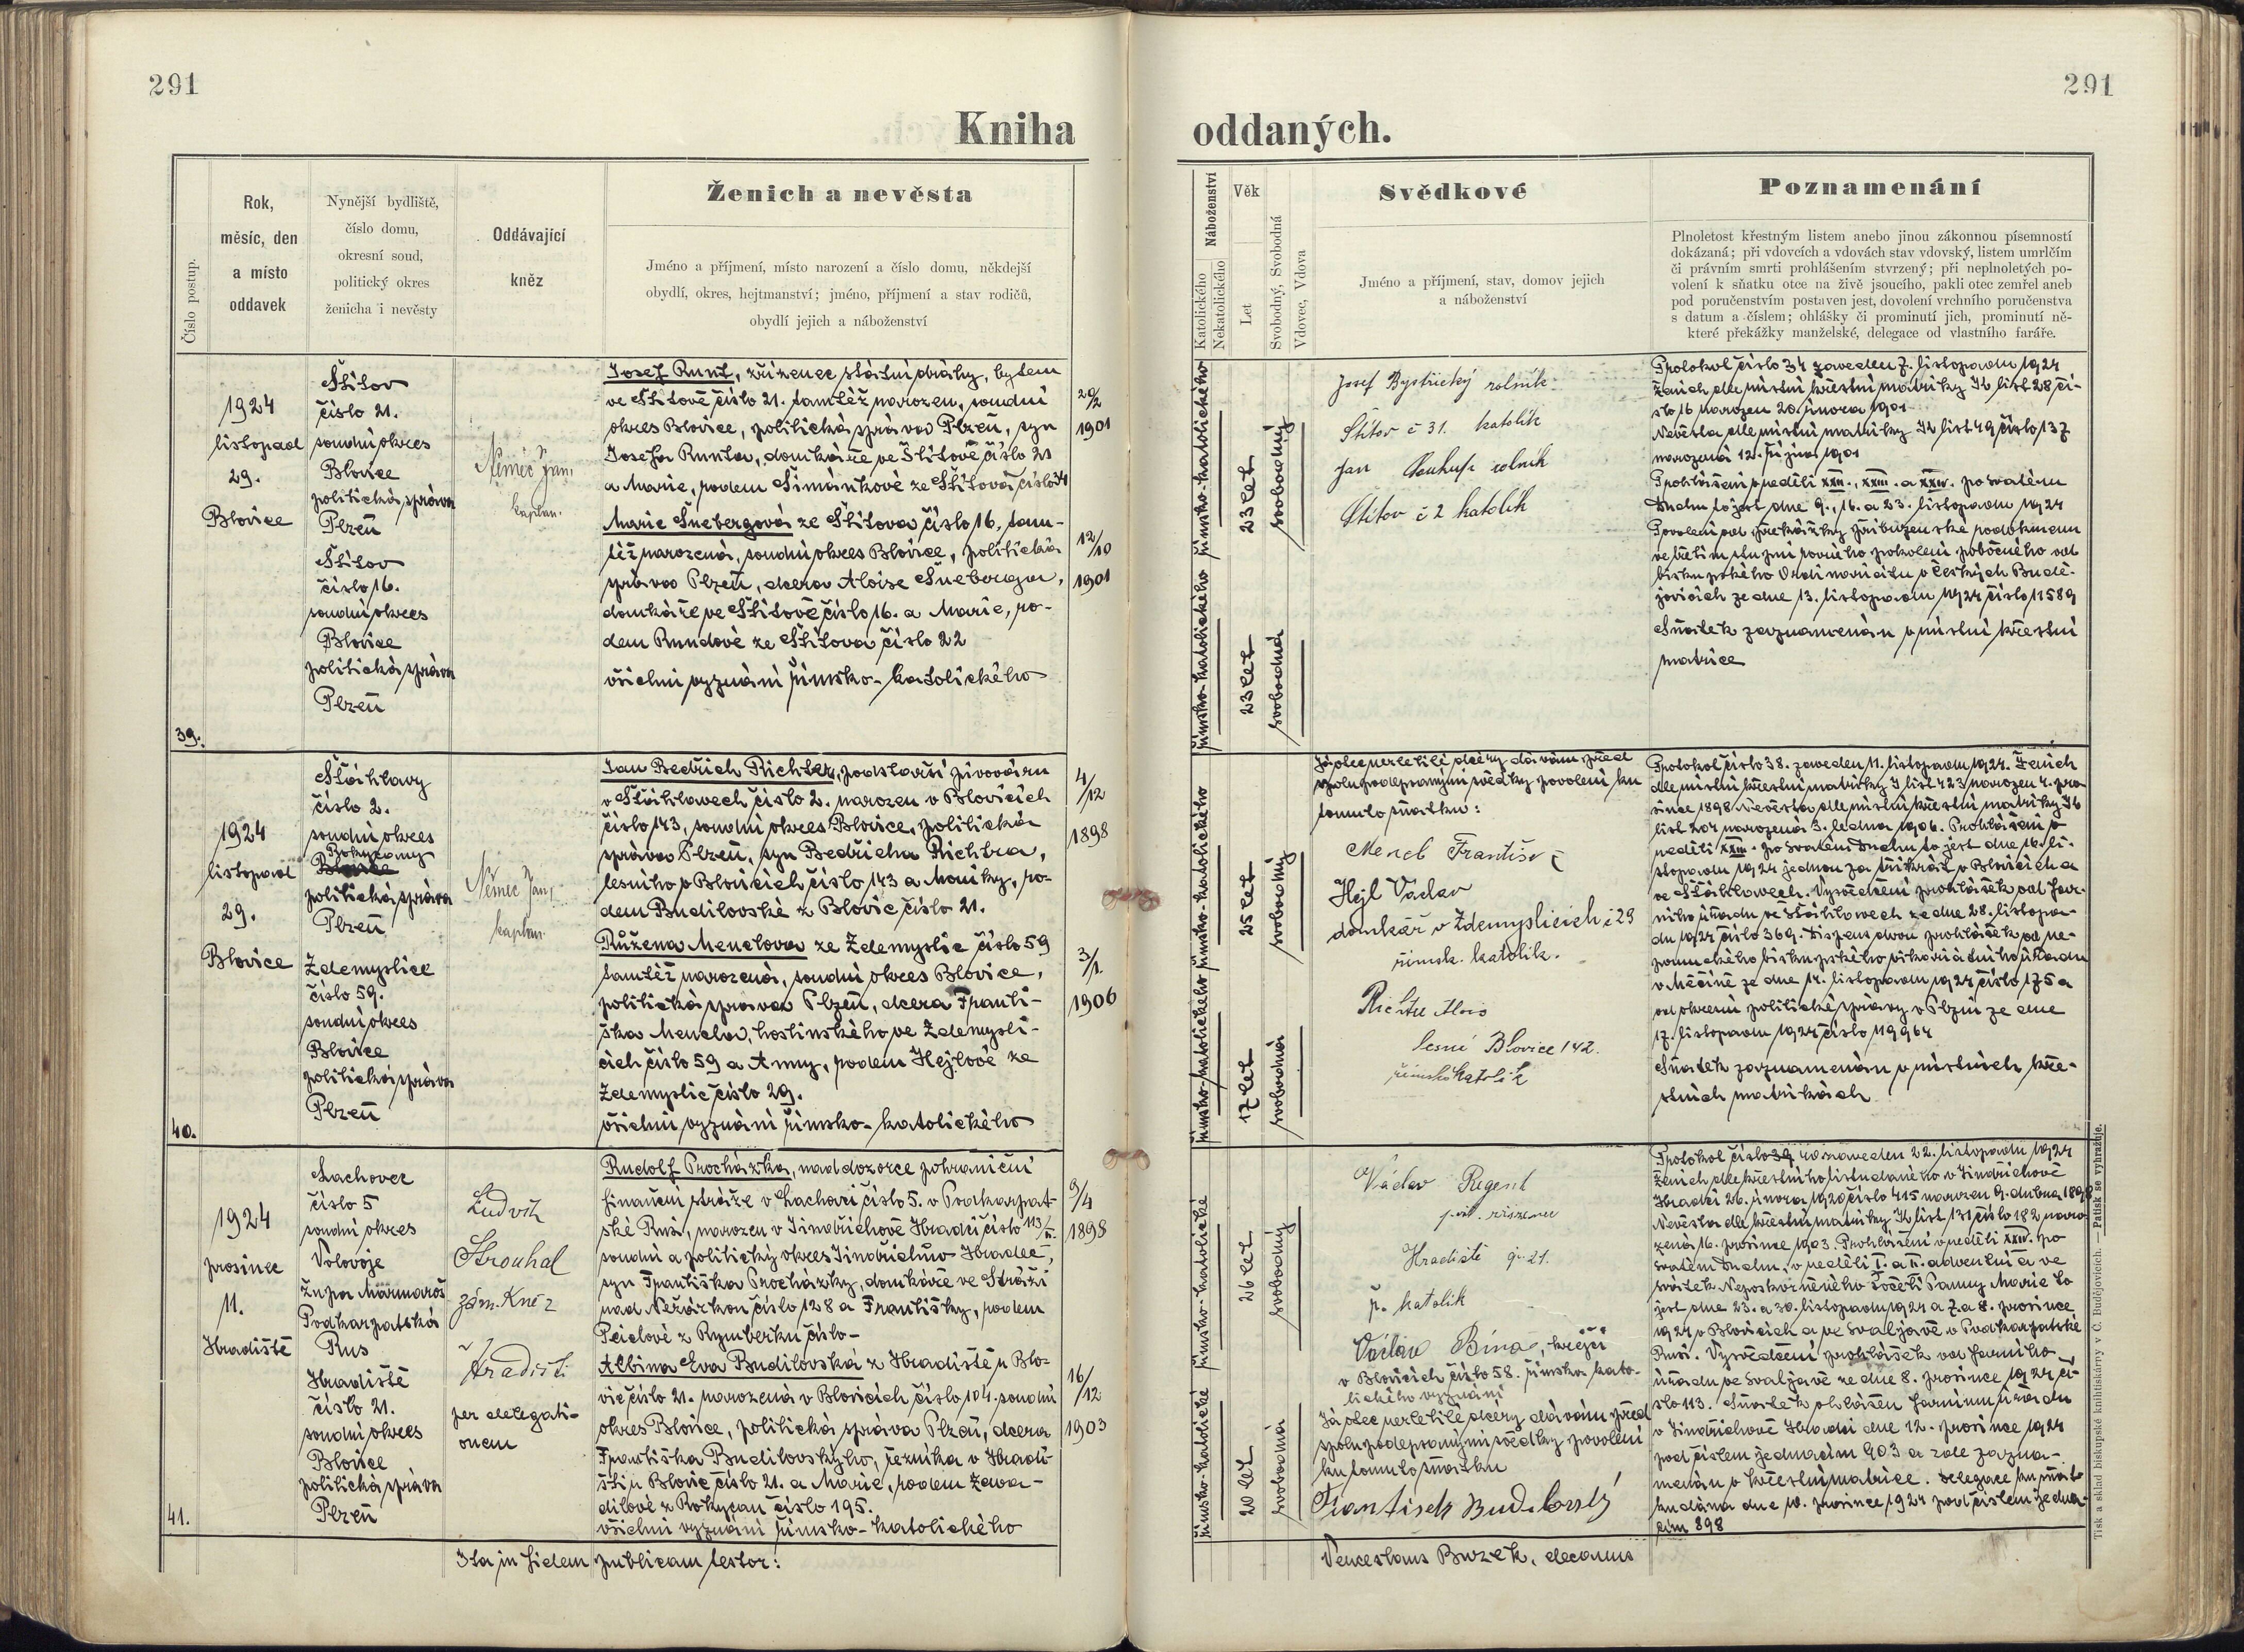 291
291
Kniha
oddaných.
Číslo postup.
Rok,
měsíc, den
a místo
oddavek
Nynější bydliště,
číslo domu,
okresní soud,
politický okres
ženicha i nevěsty
Oddávající
kněz
Ženich a nevěsta
Jméno a příjmení, místo narození a číslo domu, někdejší
obydlí, okres, hejtmanství; jméno, příjmení a stav rodičů,
obydlí jejich a náboženství
Náboženství
Katolického
Nekatolického
Věk
Let
Svobodný, Svobodná
Vdovec, Vdova
Svědkové
Jméno a příjmení, stav, domov jejich
a náboženství
Poznamenání
Plnoletost křestným listem anebo jinou zákonnou písemností
dokázaná; při vdovcích a vdovách stav vdovský, listem umrlčím
či právním smrti prohlášením stvrzený; při neplnoletých po-
volení k sňatku otce na živě jsoucího, pakli otec zemřel aneb
pod poručenstvím postaven jest, dovolení vrchního poručenstva
s datum a číslem; ohlášky či prominutí jich, prominutí ně-
které překážky manželské, delegace od vlastního faráře.
39.
1924
listopad
29.
Blovice
Štítov
číslo 21.
soudní okres
Blovice
politická správa
Plzeň
Štítov
číslo 16.
soudní okres
Blovice
politická správa
Plzeň
Němec Jan,
kaplan.
Josef Runt, zřízenec státní dráhy, bytem
ve Štítově číslo 21. tamtéž narozen, soudní
okres Blovice, politická správa Plzeň, syn
Josefa Runta, domkáře ve Štítově číslo 21
a Marie, rodem Šimánkové ze Štítova číslo 34
Marie Šnebergová ze Štítova číslo 16, tam-
též narozená, soudní okres Blovice, politická
správa Plzeň, dcera Aloise Šneberga,
domkáře ve Štítově číslo 16. a Marie, ro-
dem Rundové ze Štítova číslo 22
všichni vyznání římsko-katolického
20/2
1901
12/10
1901
římsko-katolického
římsko-katolického
23 let
23 let
svobodný
svobodná
Josef Bystřický rolník
Štítov č 31. katolík
Jan rolník
Štítov č 2 katolík
Protokol číslo 34 zaveden 7. listopadu 1924
Ženich dle místní křestní matriky Ib list 28 čí-
slo 16 narozen 20. února 1901
Nevěsta dle místní matriky Ib list 49 číslo 137
narozená 12. října 1901
Prohlášeni v neděli XXII., XXIII. a XXIV. po svatém
Duchu to jest dne 9., 16. a 23. listopadu 1924
Povolení od překážky příbuzenské pod
ve třetím stupni rovného pokolení pobočného od
biskupského Ordinariátu v Českých Budě-
jovicích ze dne 13. listopadu 1924 číslo 11589
Sňatek zaznamenán v místní křestní
matrice
40.
1924
listopad
29.
Blovice
Šťáhlavy
číslo 2.
soudní okres
Rokycany
Blovice
politická správa
Plzeň
Ždemyslice
číslo 59.
soudní okres
Blovice
politická správa
Plzeň
Němec Jan,
kaplan.
Jan Bedřich Richter, podstarší pivovaru
v Šťáhlavech číslo 2. narozen v Blovicích
číslo 143, soudní okres Blovice, politická
správa Plzeň, syn Bedřicha Richtra,
lesního v Blovicích číslo 143 a Moniky, ro-
dem Budilovské z Blovic číslo 21.
Růžena Menclova ze Ždemyslic číslo 59
tamtéž narozená, soudní okres Blovice,
politická správa Plzeň, dcera Franti-
ška Mencla, hostinského ve Ždemysli-
cích číslo 59 a Anny, rodem Hejlové ze
Ždemyslic číslo 29.
všichni vyznání římsko-katolického
4/12
1898
3/1.
1906
římsko-katolického
římsko-katolického
25 let
17 let
svobodný
svobodná
Já otec nezletilé dcery dávám před
spolupodepsanými svědky povolení ku
tomuto sňatku:
Mencl František
Hejl Václav
domkář v Ždemyslicích č 29
římsk. katolík.
Richter Alois
lesní Blovice 142.
římsko katolík
Protokol číslo 38. zaveden 11. listopadu 1924. Ženich
dle místní křestní matriky I list 423 narozen 4. pro-
since 1898 Nevěsta dle místní křestní matriky Ib
list 204 narozená 3. ledna 1906. Prohlášeni v
neděli XXIII. po svatém Duchu to jest dne 16. li-
stopadu 1924 jednou za třikrát v Blovicích a
ve Šťáhlavech. Vysvědčení prohlášek od far-
ního úřadu ve Šťáhlavech ze dne 28. listopa-
du 1924 číslo 369. Dispens dvou prohlášek od ne-
pomuckého biskupského vikariátního úřadu
v Měčíně ze dne 14. listopadu 1924 číslo 175 a
od okresní politické správy v Plzni ze dne
17. listopadu 1924 číslo 119964
Sňatek zaznamenán v místních kře-
stních matrikách
41.
1924
prosince
11.
Hradiště
Lachovec
číslo 5
soudní okres
Volovoje
župa Marmaroš
Podkarpatská
Rus
Hradiště
číslo 21.
soudní okres
Blovice
politická správa
Plzeň
Ludvík
Strouhal
zám. kněz
Hradiště
per delegati-
onem
Rudolf Procházka, naddozorce pohraniční
finanční stráže v Lachovci číslo 5. v Podkarpat-
ské Rusi, narozen v Jindřichově Hradci číslo 113/II.
soudní a politický okres Jindřichův Hradec,
syn Františka Procházky, domkáře ve Stráži
nad Nežárkou číslo 128 a Františky, rodem
z Rymberku číslo -
Albina Eva Budilovská z Hradiště u Blo-
vic číslo 21. narozená v Blovicích číslo 104. soudní
okres Blovice, politická správa Plzeň, dcera
Františka Budilovského, řezníka v Hradi-
šti u Blovic číslo 21. a Marie, rodem Zava-
dilové z Rokycan číslo 195.
všichni vyznání římsko-katolického
9/4
1898
16/12
1903
římsko-katolické
římsko-katolické
26 let
20 let
svobodný
svobodná
Václav Regent
zřízenec
Hradiště čp. 21.
ř. katolík
Václav Bína, krejčí
v Blovicích číslo 58. římsko kato-
lického vyznání
Já otec nezletilé dcery dávám před
spolupodepsanými svědky povolení
ku tomuto sňatku
František Budilovský
Protokol číslo 39 zaveden 22. listopadu 1924
Ženich dle křestního listu daného v Jindřichově
Hradci 26. února 1920 číslo 415 narozen 9. dubna 1898
Nevěsta dle křestní matriky Ib list 131 číslo 182 naro-
zená 16. prosince 1903. Prohlášeni v neděli XXIV. po
svatém Duchu, v neděli I. a II. adventní a ve
svátek Neposkvrněného Početí Panny Marie to
jest dne 23. a 30. listopadu 1924 a 7. a 8. prosince
1924 v Blovicích a ve Svaljavě v Podkarpatské
Rusi. Vysvědčení prohlášek od farního
úřadu ve Svaljavě ze dne 8. prosince 1924 čí-
slo 113. Sňatek ohlášen farnímu úřadu
v Jindřichově Hradci dne 12. prosince 1924
pod číslem jednacím 903 a zde zazna-
menán v křestní matrice. Delegace ku sňat-
ku dána dne 10. prosince 1924 pod číslem jedna-
cím 898
Ita in fidem publicam testor:
Venceslaus Buzek, decanus
Tisk a sklad biskupské knihtiskárny v Č. Budějovicích. — Patisk se vyhražuje.